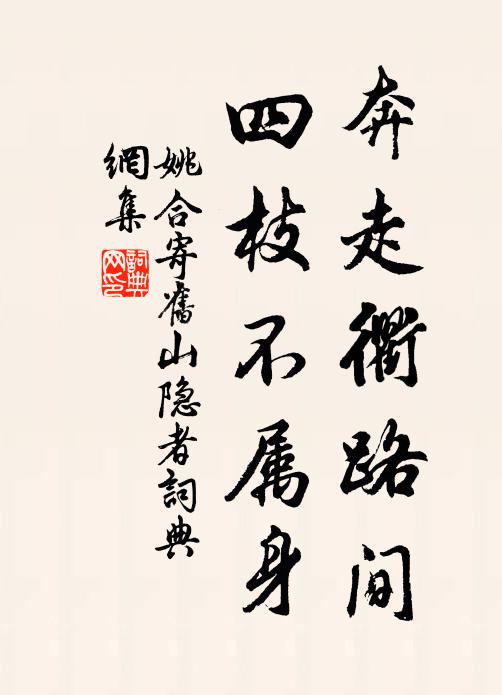 奔走衢路间
四枝不属身
姚合寄舊山隐者詞典
網集
詞典
网印